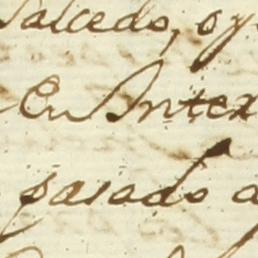 Salcedo, oy
En Inter
pasado a